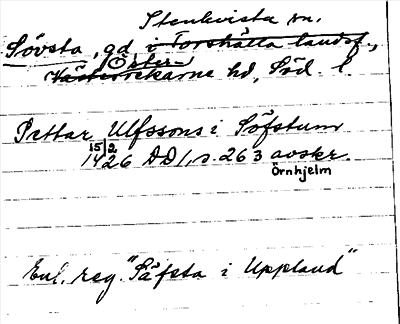 Stenkvista sn.
Sövsta, gd, i Torshälla landsf.,
Öster-
Västerrekarne hd, Söd. l.
Pettar Ulfssons i Söfstum
15/2
1426 DD 1, s. 263 avskr.
Örnhjelm
Enl. reg. "Säfsta i Uppland"